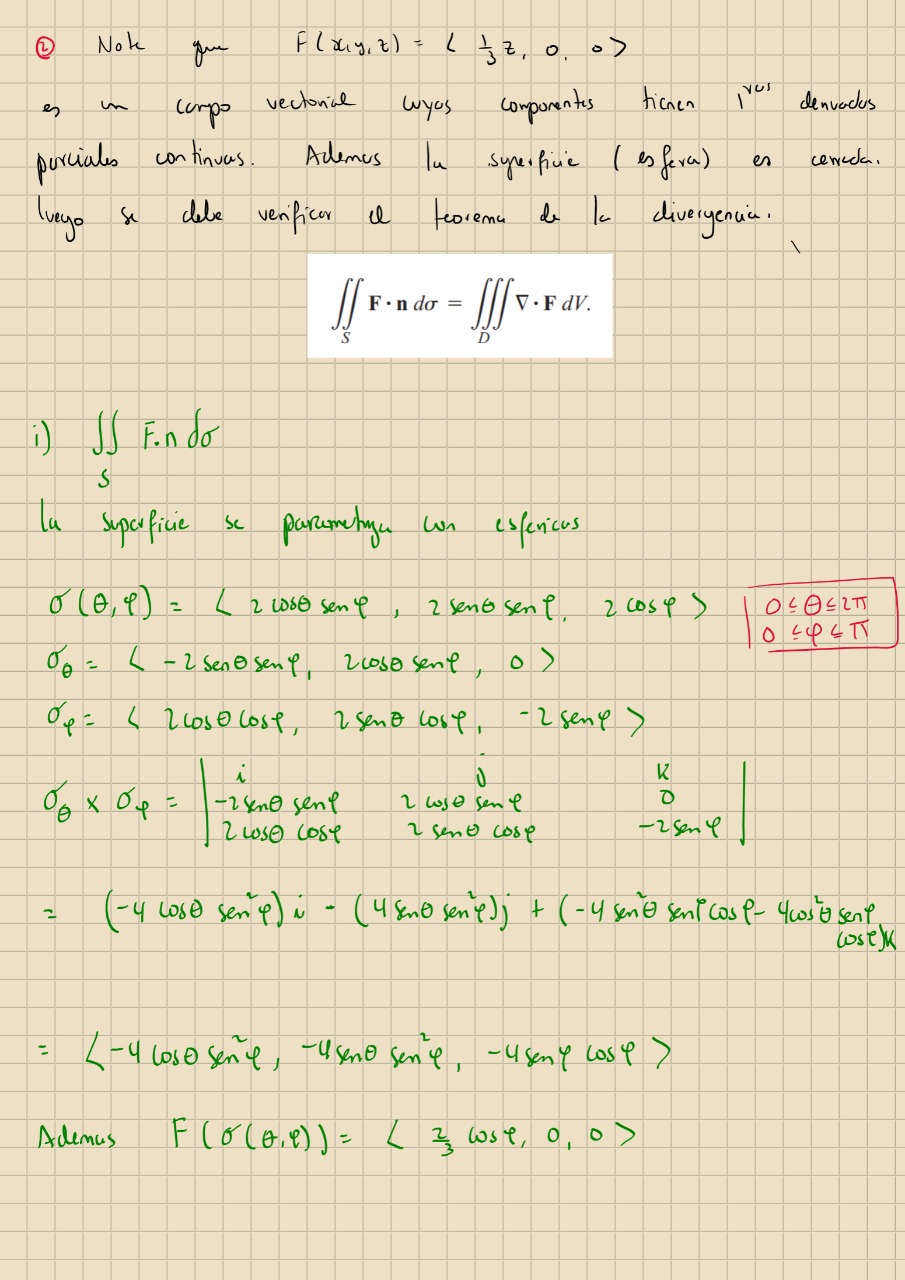 ② Note que F(x,y,z) = ⟨ 1/3 z, 0, 0 ⟩
es un campo vectorial cuyas componentes tienen 1ras derivadas
parciales continuas. Ademas la superficie (esfera) es cerrada.
luego se debe verificar el teorema de la divergencia.
∬_S F · n dσ = ∭_D ∇ · F dV.
i) ∬_S F.n dσ
la superficie se parametriza con esfericas
σ(θ,φ) = ⟨ 2 cosθ senφ , 2 senθ senφ, 2 cosφ ⟩ 0 ≤ θ ≤ 2π
0 ≤ φ ≤ π
σ_θ = ⟨ -2 senθ senφ, 2cosθ senφ, 0 ⟩
σ_φ = ⟨ 2cosθ cosφ, 2 senθ cosφ, -2 senφ ⟩
σ_θ × σ_φ = | i j k
-2 senθ senφ 2 cosθ senφ 0
2 cosθ cosφ 2 senθ cosφ -2 senφ |
= (-4 cosθ sen²φ) i - (4 senθ sen²φ) j + (-4 sen²θ senφ cosφ - 4cos²θ senφ
cosφ)k
= ⟨ -4 cosθ sen²φ, -4 senθ sen²φ, -4 senφ cosφ ⟩
Ademas F(σ(θ,φ)) = ⟨ 2/3 cosφ, 0, 0 ⟩